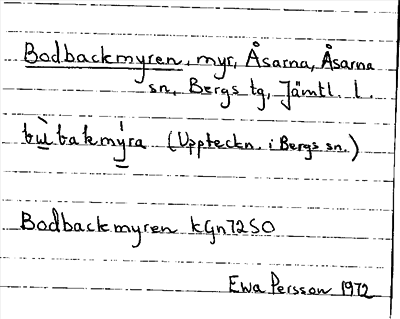 Bodbackmyren, myr, Åsarna, Åsarna
sn, Bergs tg, Jämtl. l.
bùbakmýra (Uppteckn. i Bergs sn.)
Bodbackmyren kGn72SO
Ewa Persson 1972